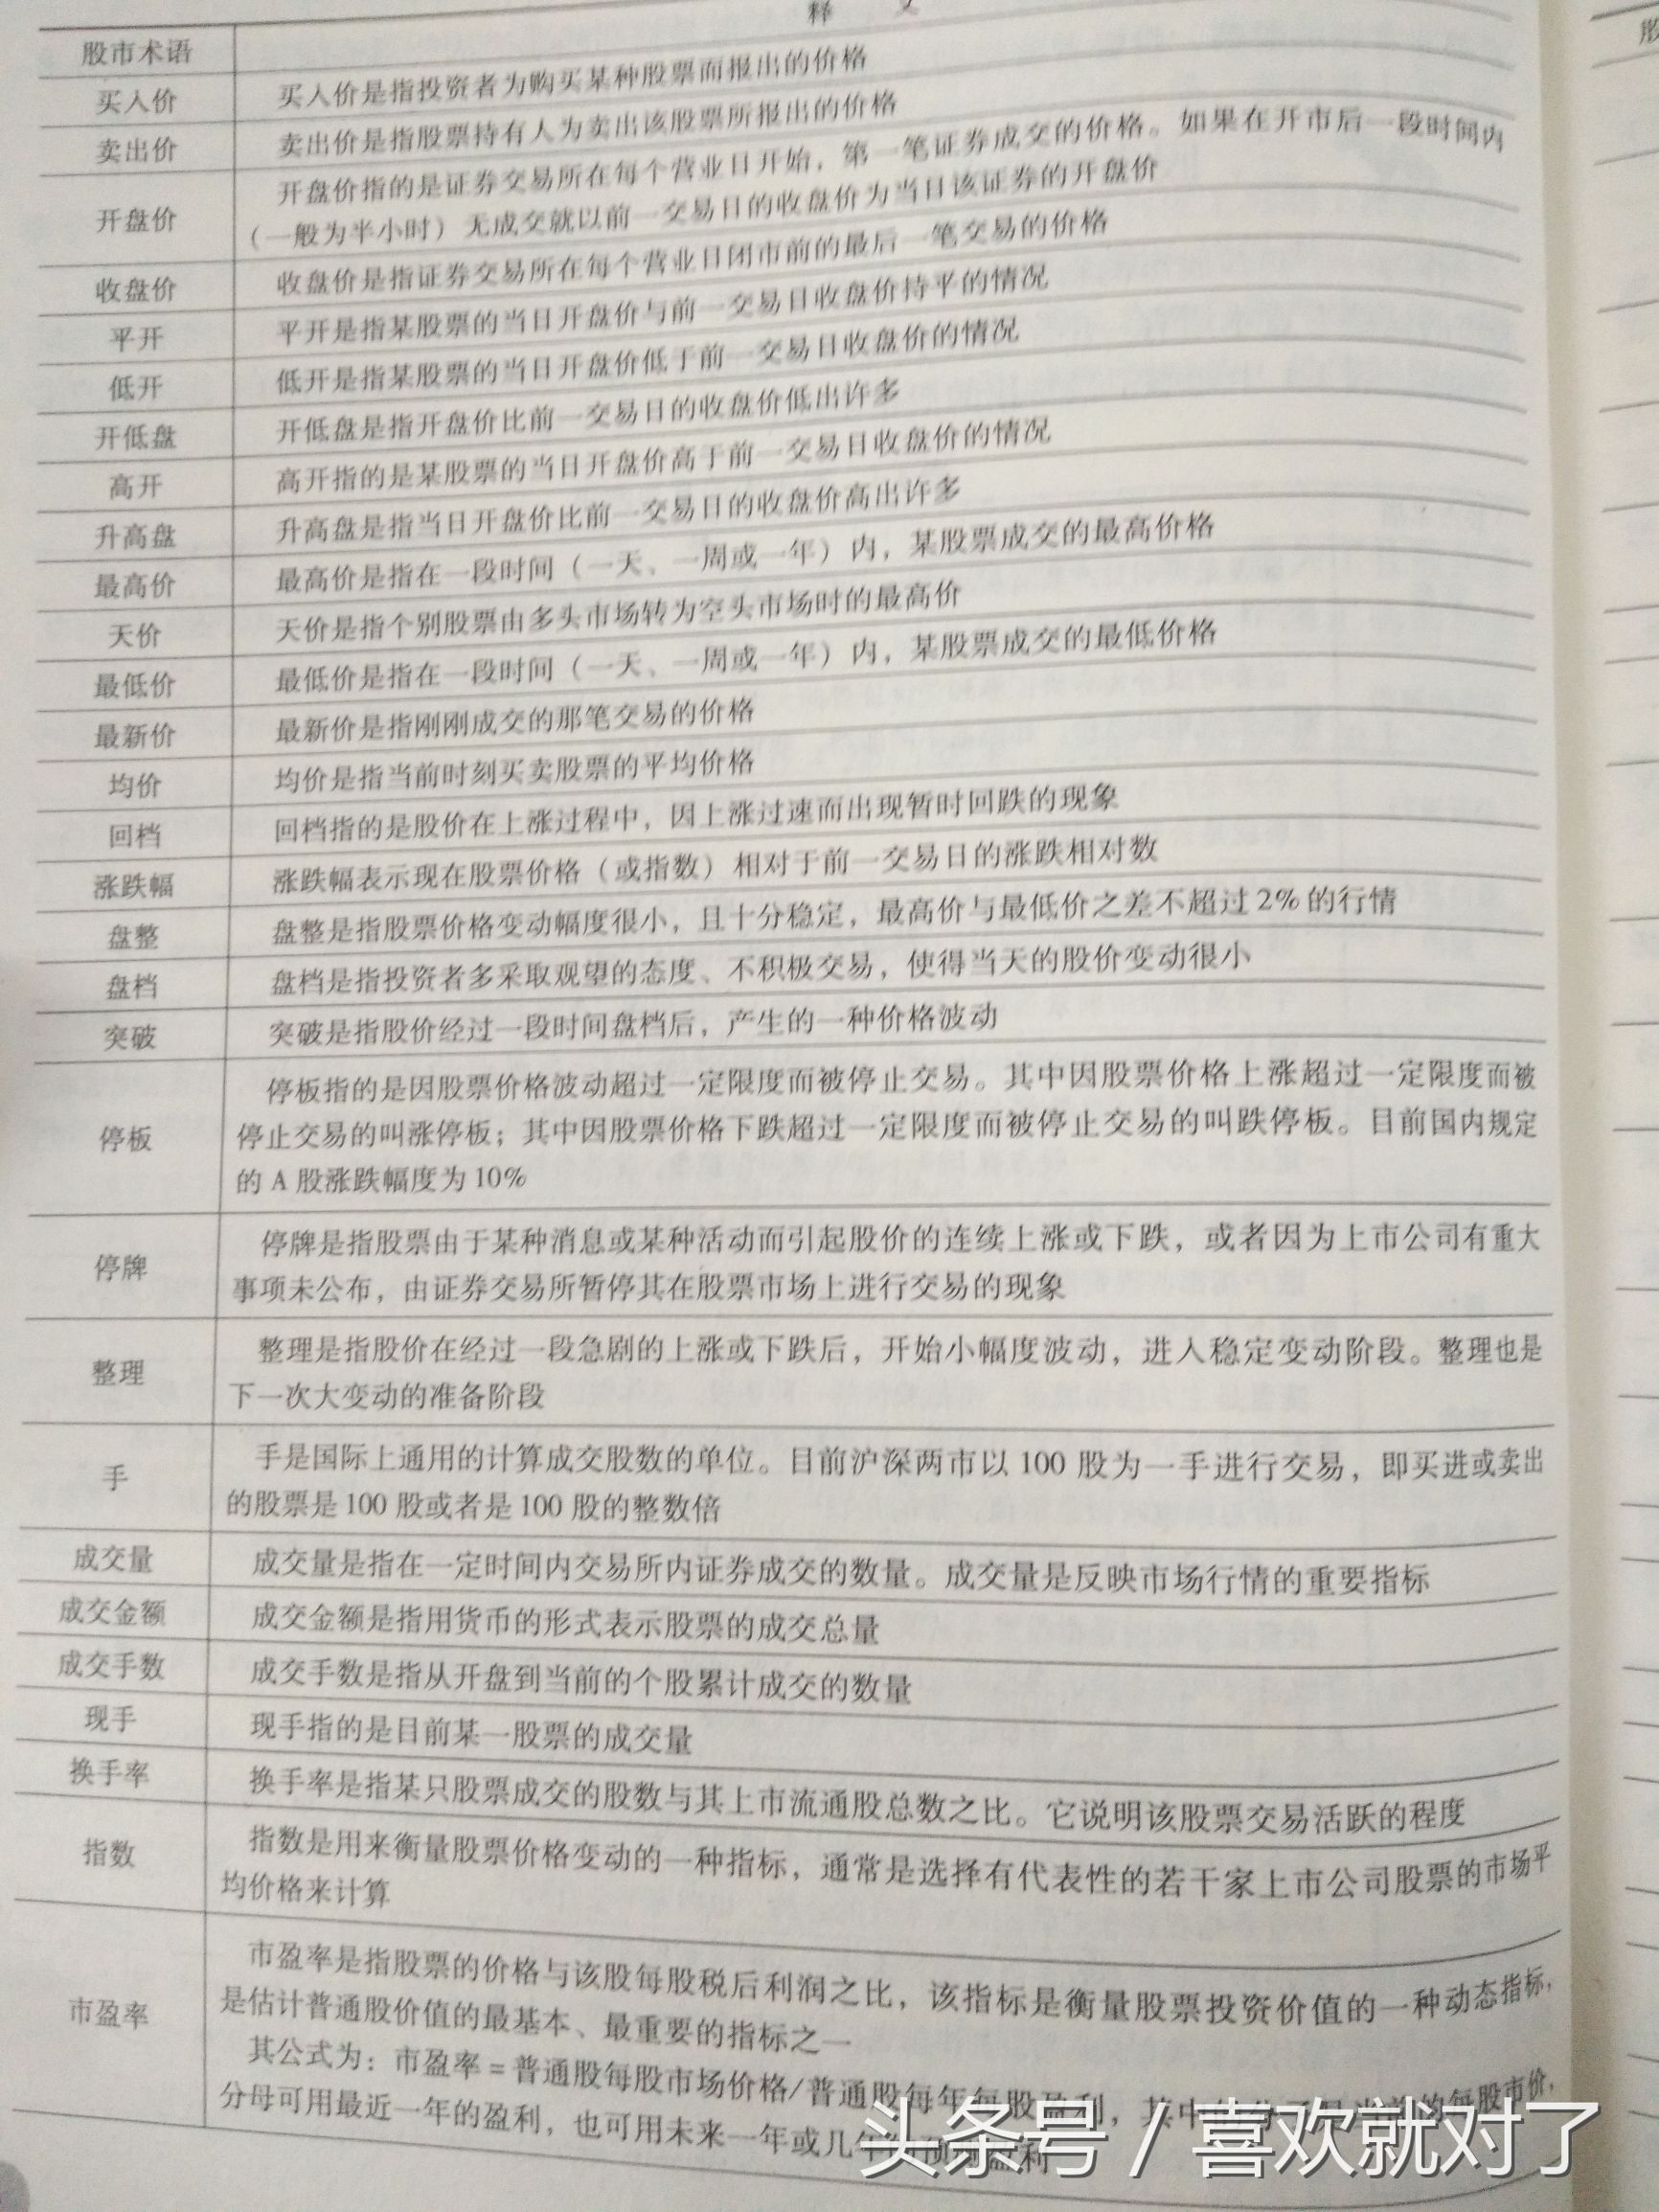 释 义
股市术语
买入价 买入价是指投资者为购买某种股票而报出的价格
卖出价 卖出价是指股票持有人为卖出该股票所报出的价格
开盘价 开盘价指的是证券交易所在每个营业日开始，第一笔证券成交的价格。如果在开市后一段时间内
（一般为半小时）无成交就以前一交易日的收盘价为当日该证券的开盘价
收盘价 收盘价是指证券交易所在每个营业日闭市前的最后一笔交易的价格
平开 平开是指某股票的当日开盘价与前一交易日收盘价持平的情况
低开 低开是指某股票的当日开盘价低于前一交易日收盘价的情况
开低盘 开低盘是指开盘价比前一交易日的收盘价低出许多
高开 高开指的是某股票的当日开盘价高于前一交易日收盘价的情况
升高盘 升高盘是指当日开盘价比前一交易日的收盘价高出许多
最高价 最高价是指在一段时间（一天、一周或一年）内，某股票成交的最高价格
天价 天价是指个别股票由多头市场转为空头市场时的最高价
最低价 最低价是指在一段时间（一天、一周或一年）内，某股票成交的最低价格
最新价 最新价是指刚刚成交的那笔交易的价格
均价 均价是指当前时刻买卖股票的平均价格
回档 回档指的是股价在上涨过程中，因上涨过速而出现暂时回跌的现象
涨跌幅 涨跌幅表示现在股票价格（或指数）相对于前一交易日的涨跌相对数
盘整 盘整是指股票价格变动幅度很小，且十分稳定，最高价与最低价之差不超过2%的行情
盘档 盘档是指投资者多采取观望的态度、不积极交易，使得当天的股价变动很小
突破 突破是指股价经过一段时间盘档后，产生的一种价格波动
停板 停板指的是因股票价格波动超过一定限度而被停止交易。其中因股票价格上涨超过一定限度而被
停止交易的叫涨停板；其中因股票价格下跌超过一定限度而被停止交易的叫跌停板。目前国内规定
的 A 股涨跌幅度为10%
停牌 停牌是指股票由于某种消息或某种活动而引起股价的连续上涨或下跌，或者因为上市公司有重大
事项未公布，由证券交易所暂停其在股票市场上进行交易的现象
整理 整理是指股价在经过一段急剧的上涨或下跌后，开始小幅度波动，进入稳定变动阶段。整理也是
下一次大变动的准备阶段
手 手是国际上通用的计算成交股数的单位。目前沪深两市以 100 股为一手进行交易，即买进或卖出
的股票是 100 股或者是 100 股的整数倍
成交量 成交量是指在一定时间内交易所内证券成交的数量。成交量是反映市场行情的重要指标
成交金额 成交金额是指用货币的形式表示股票的成交总量
成交手数 成交手数是指从开盘到当前的个股累计成交的数量
现手 现手指的是目前某一股票的成交量
换手率 换手率是指某只股票成交的股数与其上市流通股总数之比。它说明该股票交易活跃的程度
指数 指数是用来衡量股票价格变动的一种指标，通常是选择有代表性的若干家上市公司股票的市场平
均价格来计算
市盈率 市盈率是指股票的价格与该股每股税后利润之比，该指标是衡量股票投资价值的一种动态指标，
是估计普通股价值的最基本、最重要的指标之一
其公式为：市盈率＝普通股每股市场价格/普通股每年每股盈利，其中 的每股市价，
分母可用最近一年的盈利，也可用未来一年或几年 盈利
头条号 / 喜欢就对了
股